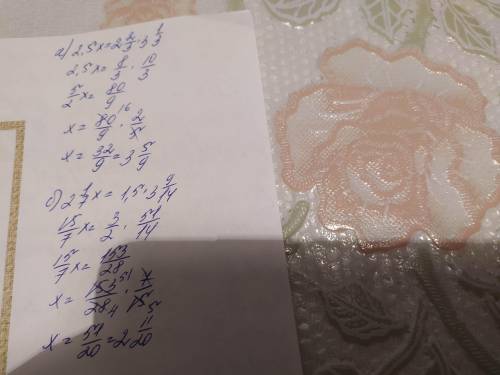 а) 2,5x = 2 2/3 · 3 1/3
2,5x = 8/3 · 10/3
5/2 x = 80/9
x = 80/9 · 2/5 16
x = 32/9 = 3 5/9
с) 2 1/7 x = 1,5 · 3 9/14
15/7 x = 3/2 · 51/14
15/7 x = 153/28
x = 153/28 · 7/15 51 4 5
x = 51/20 = 2 11/20